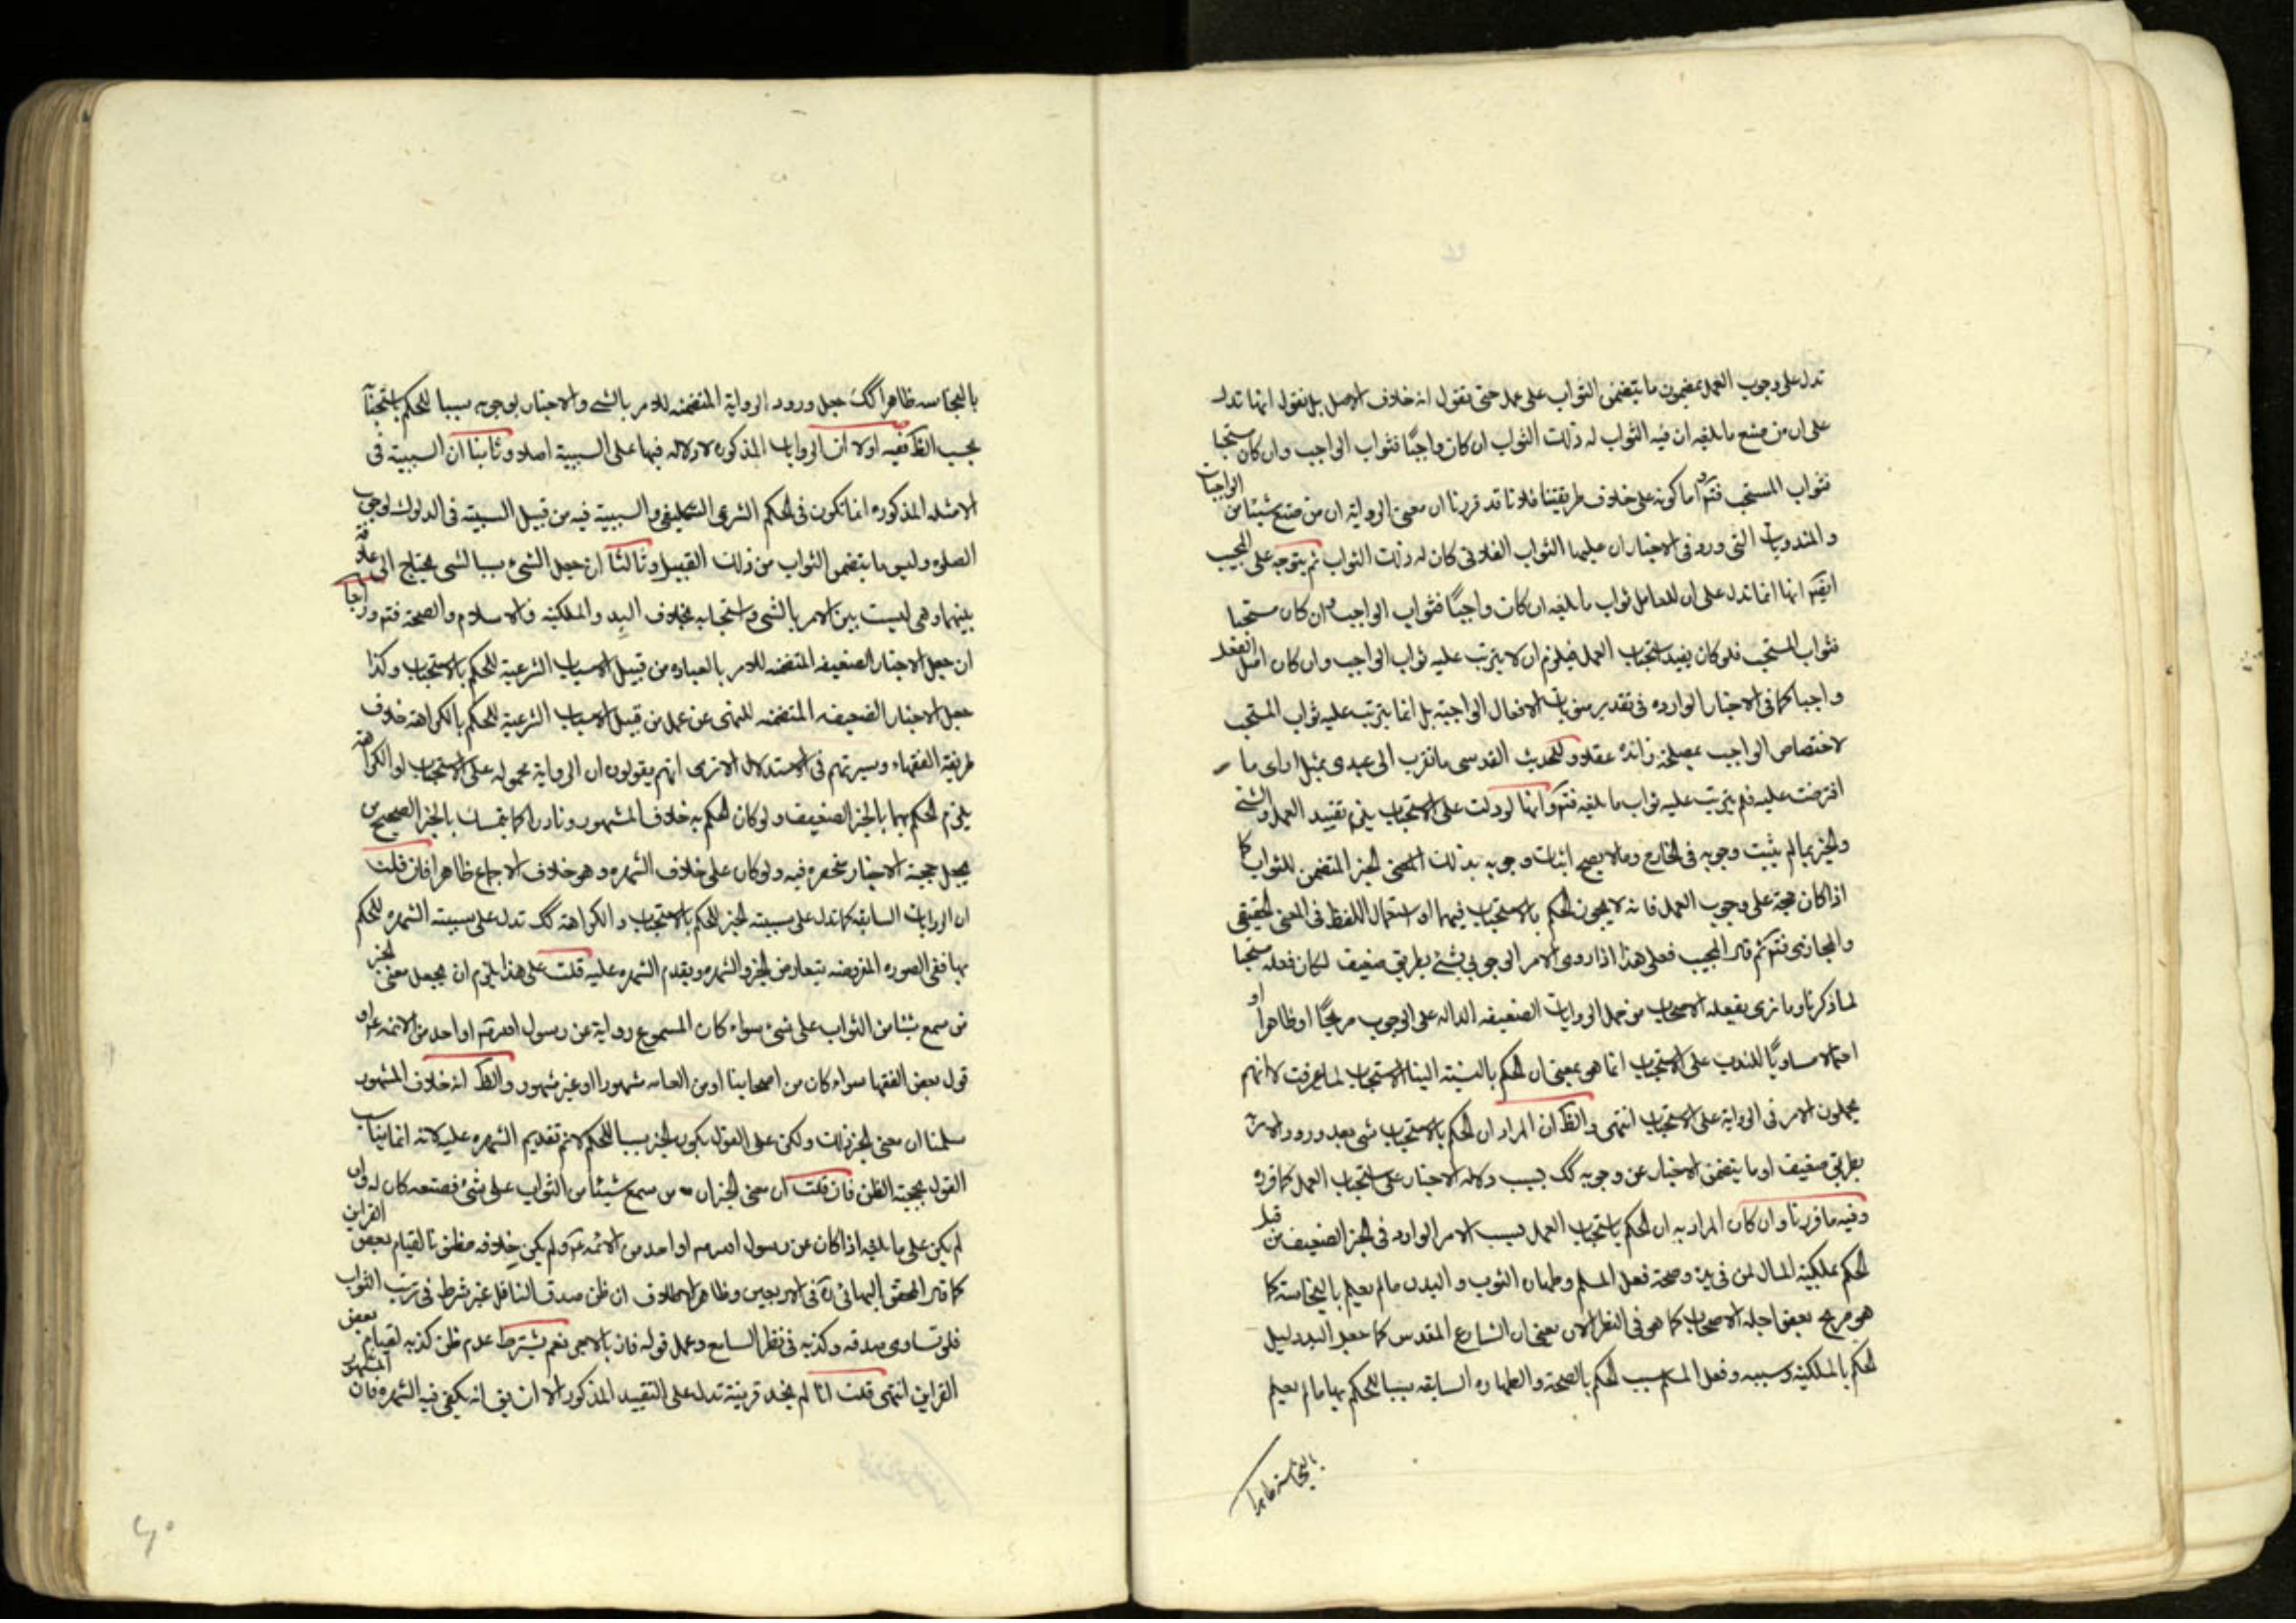 تدل على وجوب العمل بمضمون ما يتضمن الثواب على عمل حتى نقول انه خلاف الاصل بل نقول انها تدل
على ان من صنع ما بلغه ان فيه الثواب له ذلك الثواب ان كان واجبًا فثواب الواجب وان كان مستحبا
فثواب المستحب فتم واما كونه على خلاف طريقتنا فلانا قد قررنا ان معنى الرواية ان من صنع شيئا من الواجبات
والمندوبات التى ورد فى الاخبار ان عليها الثواب الفلانى كان له ذلك الثواب ثم يتوجه على المجيب
ايضا انها انما تدل على ان للعامل ثواب ما بلغه ان كان واجبًا فثواب الواجب وان كان مستحبا
فثواب المستحب فلو كان يفيد استحباب العمل فيلزم ان لا يترتب عليه ثواب الواجب وان كان اصل الفعل
واجبا كما فى الاخبار الوارده فى تقدير مثوبات الافعال الواجبة بل انما يترتب عليه ثواب المستحب
لاختصاص الواجب بمصلحة زائدة عقلا وللحديث القدسى ما تقرب الى عبدى بمثل اداى ما
افترضت عليه فلم يترتب عليه ثواب ما بلغه فتم وانها لو دلت على الاستحباب يلزم تقييد العمل والشئ
والخير بما لم يثبت وجوبه فى الخارج وما لا يصح اثبات وجوبه بذلك المعنى الخبر المتضمن للثواب كما
اذا كان حجة على وجوب العمل فانه لا يجوز الحكم بالاستحباب فيهما او استعمال اللفظ فى المعنى الحقيقى
والمجازى فتم ثم قال المجيب فعلى هذا اذا روى الامر الوجوبى بشئ بطريق ضعيف لكان فعله مستحبا
لما ذكرنا وما نرى يفعله الاصحاب من حمل الروايات الضعيفه الداله على الوجوب صريحًا او ظاهرا او
احتمالا مساويًا للندب على الاستحباب انما هو بمعنى ان الحكم بالنسبة الينا الاستحباب لما عرفت لا انهم
يحملون الامر فى الرواية على الاستحباب انتهى والظ ان المراد ان الحكم بالاستحباب شئ بعد ورود الامر
بطريق ضعيف او ما يتضمن الاخبار عن وجوبه كك بسبب دلاله الاخبار على استحباب العمل كما قرره
وفيه ما قررنا وان كان المراد به ان الحكم باستحباب العمل بسبب الامر الوارد فى الخبر الضعيف من قبل
الحكم بملكية المال لمن فى يده وصحة فعل المسلم وطهاره الثوب والبدن ما لم يعلم بالنجاسة كما
هو صريح بعض اجله الاصحاب كما هو فى النظر الان بمعنى ان الشارع المقدس كما جعل اليد دليل
الحكم بالملكية وسببه وفعل المسلم سبب الحكم بالصحة والطهاره السابقه سببا للحكم بها ما لم يعلم
بالنجاسة ظاهرا
بالنجاسه ظاهرا كك جعل ورود الرواية المتضمنه للامر بالشئ والاخبار بوجوبه سببا للحكم باستحبابه
بحسب الظ ففيه اولا ان الروايات المذكوره لا دلاله فيها على السببية اصلا وثانيا ان السببية فى
الامثله المذكوره انما تكون فى الحكم الشرعى التكليفى والسببية فيه من قبيل السببية فى الدلوك لوجوب
الصلوه وليس ما يتضمن الثواب من ذلك القبيل وثالثا ان جعل الشئ سببا لشئ يحتاج الى علاقة
بينهما وهى ليست بين الامر بالشئ واستحبابه بخلاف اليد والملكية والاسلام والصحة فتم ورابعا
ان جعل الاخبار الضعيفه المتضمنه للامر بالعباده من قبيل الاسباب الشرعية للحكم بالاستحباب وكذا
جعل الاخبار الضعيفه المتضمنه للنهى عن عمل من قبيل الاسباب الشرعية للحكم بالكراهة خلاف
طريقة الفقهاء وسيرتهم فى الاستدلال الا ترى انهم يقولون ان الرواية محموله على الاستحباب او الكراهة
يلزم الحكم بهما بالخبر الضعيف ولو كان الحكم به خلاف المشهور ونادرا كما يتمسك بالخبر الصحيح من
يجعل حجية الاخبار منحصره فيه ولو كان على خلاف الشهره وهو خلاف الاجماع ظاهرا فان قلت
ان الروايات السابقه كما تدل على سببية الخبر للحكم بالاستحباب والكراهة كك تدل على سببية الشهره للحكم
بها ففى الصوره المفروضه يتعارض الخبر والشهره ويقدم الشهره عليه قلت على هذا يلزم ان يجعل معنى الخبر
من سمع شيئا من الثواب على شئ سواء كان المسموع رواية عن رسول الله ص او احد من الائمه ع او
قول بعض الفقها سواء كان من اصحابنا او من العامه مشهورا او غير مشهور والظ انه خلاف المشهور
سلمنا ان معنى الخبر ذلك ولكن على القول بكون الخبر سببا للحكم لا نم تقديم الشهره عليه لانه انما يناسب
القول بحجية الظن فان قلت ان معنى الخبر ان من سمع شيئا من الثواب على شئ فصنعه كان له وان
لم يكن على ما بلغه اذا كان عن رسول الله ص او احد من الائمه ع ولم يكن خلافه مظنونا لقيام بعض القراين
كما قال المحقق البهائى ره فى الاربعين وظاهر الاطلاق ان ظن صدق الناقل غير شرط فى ترتب الثواب
فلو تساوى صدقه وكذبه فى نظر السامع وعمل قوله فاز بالاجر نعم يشترط عدم ظن كذبه لقيام بعض
القراين انتهى قلت انا لم نجد قرينة تدل على التقييد المذكور الا ان يق انه يكفى فيه الشهره فان المشهور